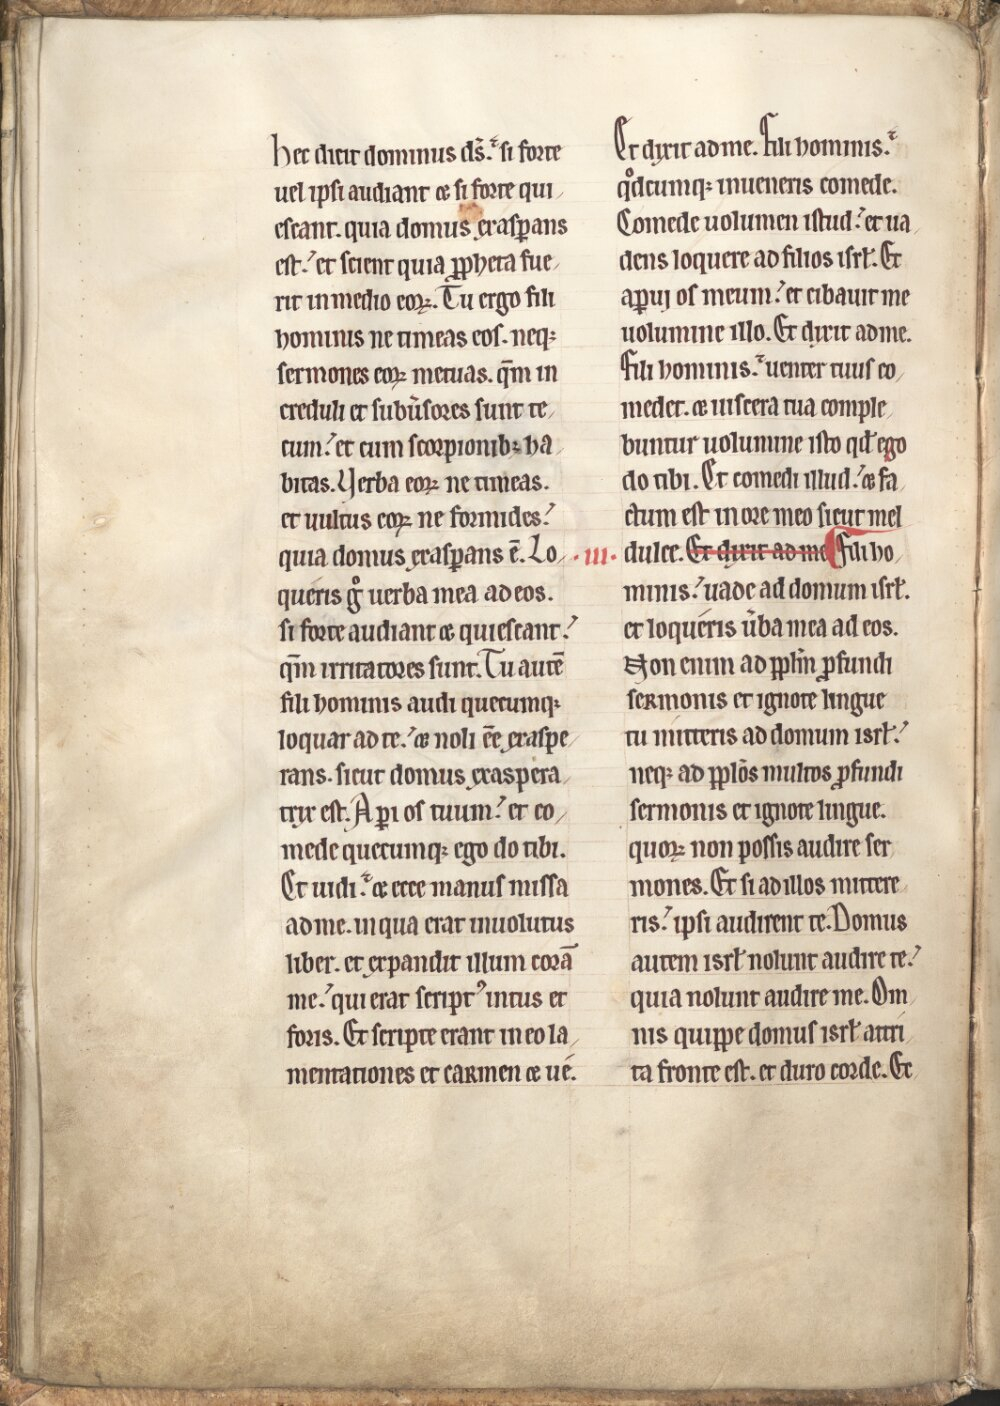 hec dicit dominus ds̄. si forte
uel ipsi audiant & si forte qui
escant. quia domus exasꝑans
est. et scient quia ꝓpheta fue
rit in medio eoꝝ. Tu ergo fili
hominis ne timeas eos. neqꝫ
sermones eoꝝ metuas. qm̄ in
creduli et subūsores sunt te
cum. et cum scorpionibꝫ ha
bitas. Verba eoꝝ ne timeas.
et uultus eoꝝ ne formides.
quia domus exasꝑans ē. Lo
queris gͦ uerba mea ad eos.
si forte audiant & quiescant.
qm̄ irritatores sunt. Tu autē
fili hominis audi quecumqꝫ
loquar ad te. & noli ēē exaspe
rans. sicut domus exaspera
trix est. Aꝑi os tuum. et co
mede quecumqꝫ ego do tibi.
Et uidi. & ecce manus missa
ad me. in qua erat inuolutus
liber. et expandit illum corā
me. qui erat scriptꝰ intus et
foris. Et scripte erant in eo la
mentationes et carmen & ue.
Et dixit ad me. Fili hominis.
qͦdcumqꝫ inueneris comede.
Comede uolumen istud. et ua
dens loquere ad filios isrł. Et
aꝑui os meum. et cibauit me
uolumine illo. Et dixit ad me.
Fili hominis. uenter tuus co
medet. & uiscera tua comple
buntur uolumine isto qđ ego
do tibi. Et comedi illud. & fa
ctum est in ore meo sicut mel
.III. dulce. Et dixit ad me Fili ho
minis. uade ad domum isrł.
et loqueris ūba mea ad eos.
Non enim ad pplm̄ ꝓfundi
sermonis et ignote lingue
tu mitteris ad domum isrł.
neqꝫ ad pplōs multos ꝓfundi
sermonis et ignote lingue.
quoꝝ non possis audire ser
mones. Et si ad illos mittere
ris. ipsi audirent te. Domus
autem isrł nolunt audire te.
quia nolunt audire me. Om
nis quippe domus isrł attri
ta fronte est. et duro corde. Ec